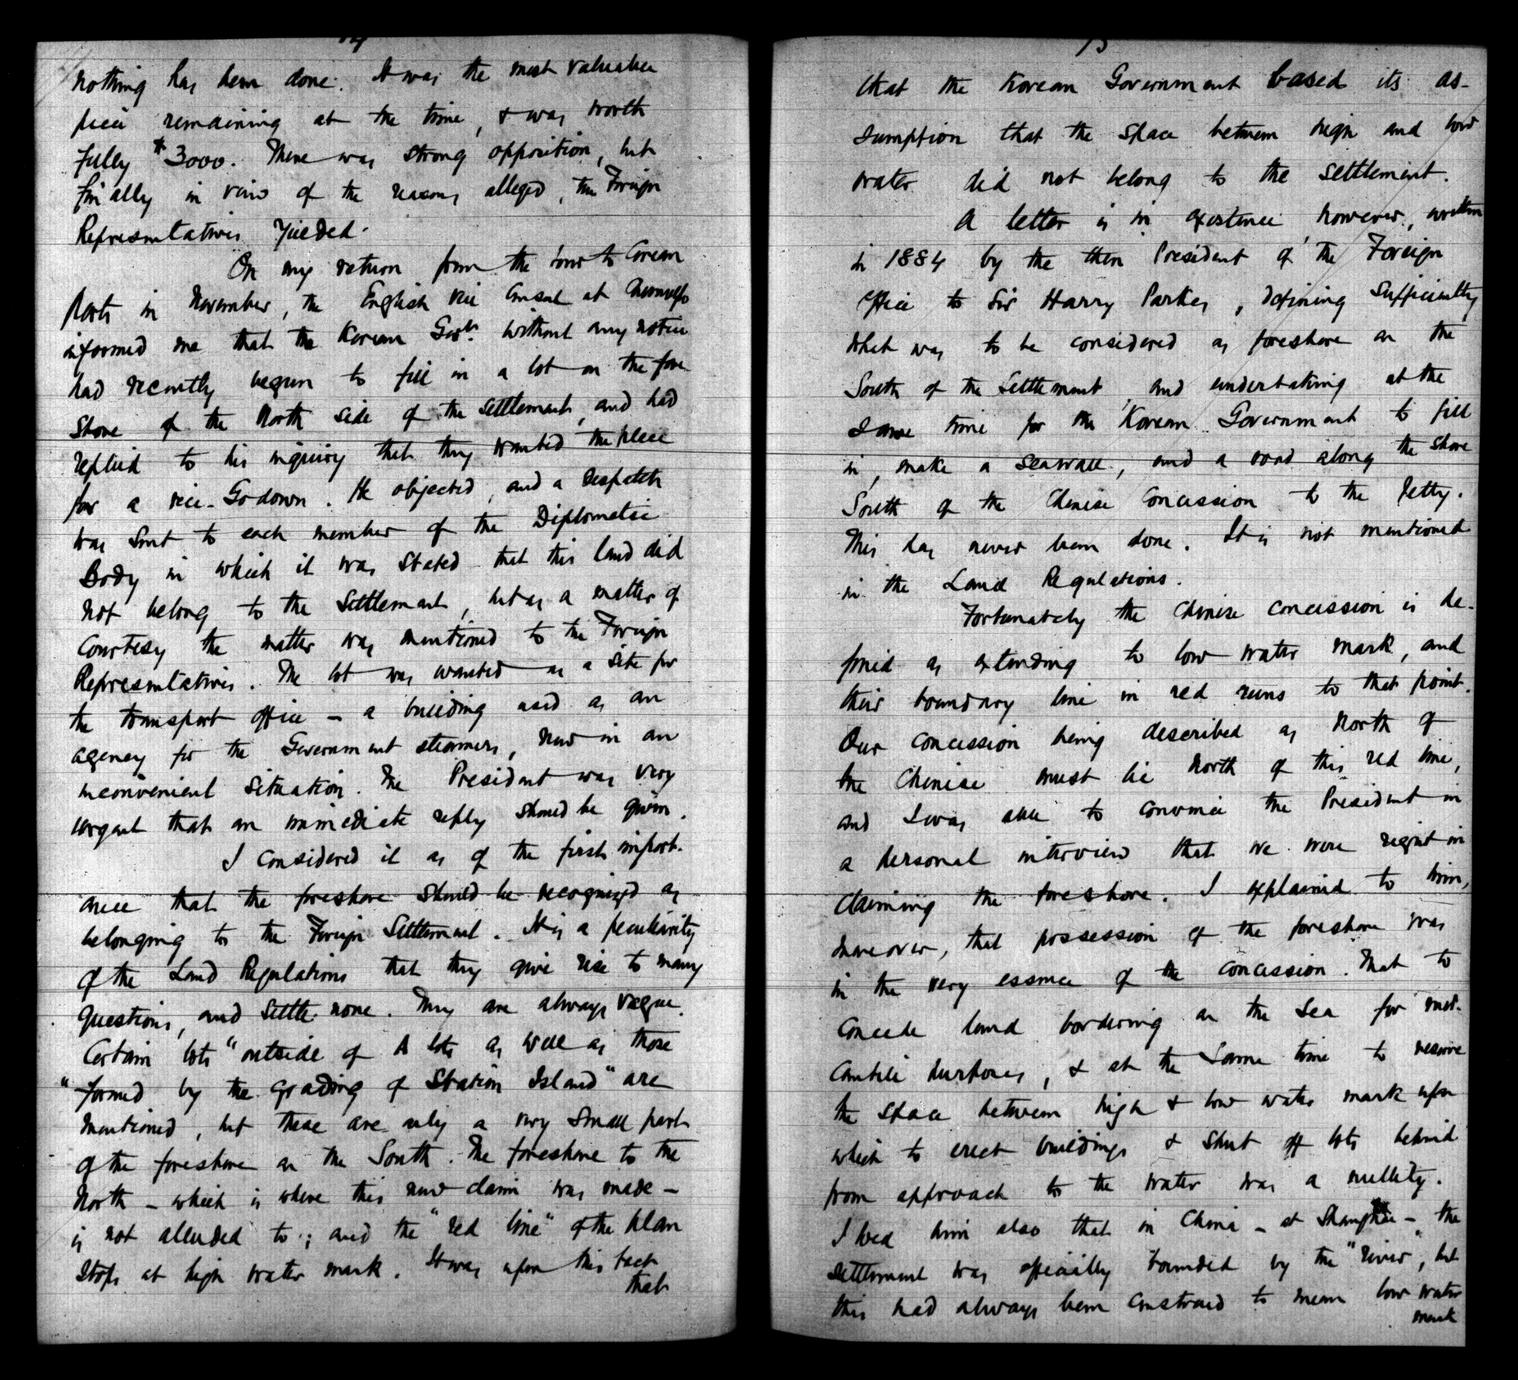 14
nothing has been done. It was the most valuable
piece remaining at the time, & was worth
fully $3000. There was strong opposition, but
finally in view of the reasons alleged, the Foreign
Representatives yielded.
On my return from the tour to Corean
Ports in November, the English Vice Consul at Chemulpo
informed me that the Korean Govt. without any notice
had recently begun to fill in a lot on the fore
shore of the North side of the settlement, and had
replied to his inquiry that they wanted the place
for a rice-Godown. He objected, and a despatch
was sent to each member of the Diplomatic
Body in which it was stated that this land did
not belong to the Settlement, but as a matter of
courtesy the matter was mentioned to the Foreign
Representatives. The lot was wanted as a site for
the transport office – a building used as an
agency for the Government steamers, now in an
inconvenient situation. The President was very
urgent that an immediate reply should be given.
I considered it as of the first import-
ance that the foreshore should be recognized as
belonging to the Foreign Settlement. It is a peculiarity
of the Land Regulations that they give rise to many
questions, and settle none. They are always vague.
Certain lots "outside of A lots as well as those
"formed by the grading of Station Island" are
mentioned, but these are only a very small part
of the foreshore on the South. The foreshore to the
North – which is where this new claim was made –
is not alluded to; and the "red line" of the plan
stops at high water mark. It was upon this fact
that
15
that the Korean Government based its as-
sumption that the space between high and low
water did not belong to the settlement.
A letter is in existence, however, written
in 1884 by the then President of the Foreign
Office to Sir Harry Parkes, defining sufficiently
what was to be considered as foreshore on the
South of the Settlement and undertaking at the
same time for the Korean Government to fill
in, make a seawall, and a road along the shore
South of the Chinese Concession to the Jetty.
This has never been done. It is not mentioned
in the Land Regulations.
Fortunately the Chinese concession is de-
fined as extending to low water mark, and
their boundary line in red runs to that point.
Our concession being described as North of
the Chinese must lie North of this red line,
and I was able to convince the President in
a personal interview that we were right in
claiming the foreshore. I explained to him,
moreover, that possession of the foreshore was
in the very essence of the concession. That to
concede land bordering on the Sea for mer-
cantile purposes, & at the same time to reserve
the space between high & low water mark upon
which to erect buildings & shut off lots behind
from approach to the water was a nullity.
I told him also that in China – at Shanghai – the
settlement was officially bounded by the "river", but
this had always been construed to mean low water
mark